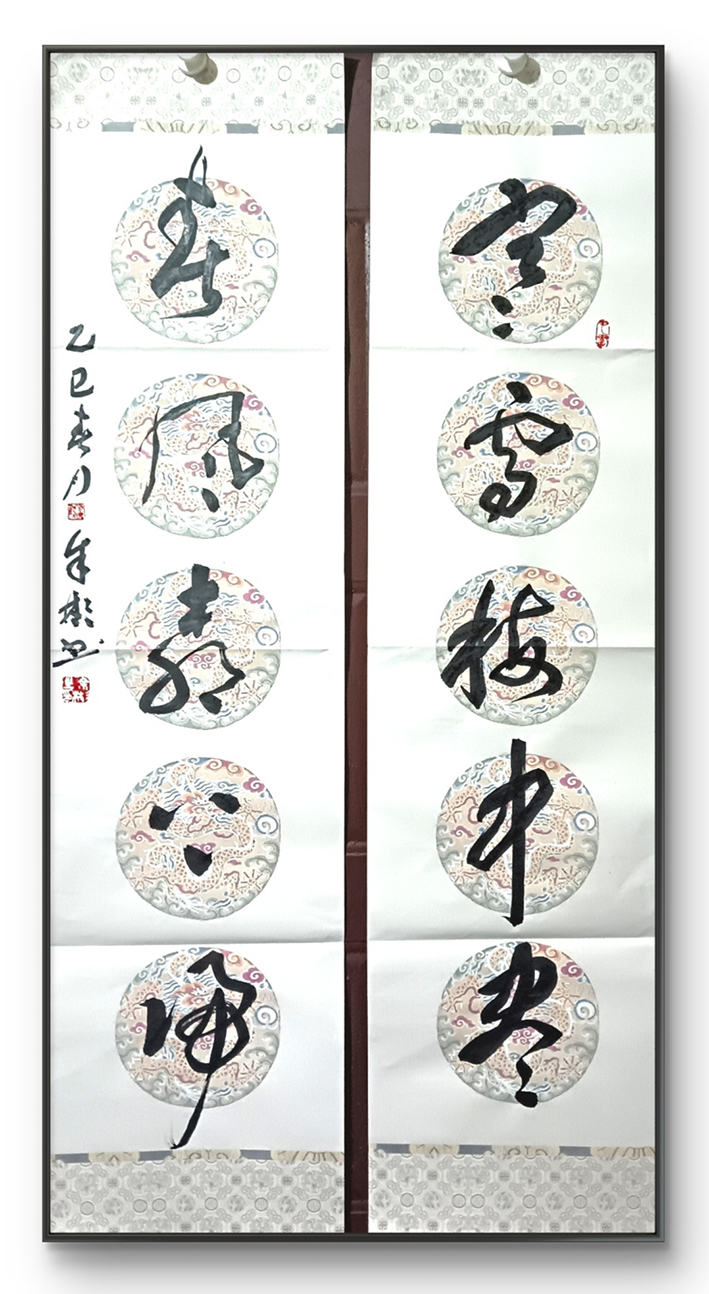 寒雪梅中尽
春风柳上归
乙巳春月
书